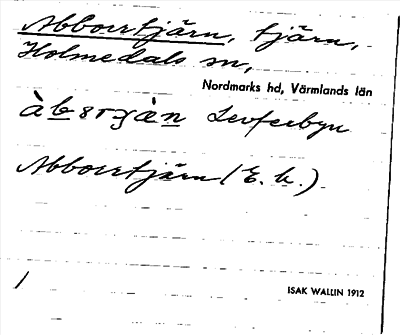 Abborrtjärn, tjärn,
Holmedals sn,
Nordmarks hd, Värmlands län
Abborrtjärn (E. k.)
1
ISAK WALLIN 1912